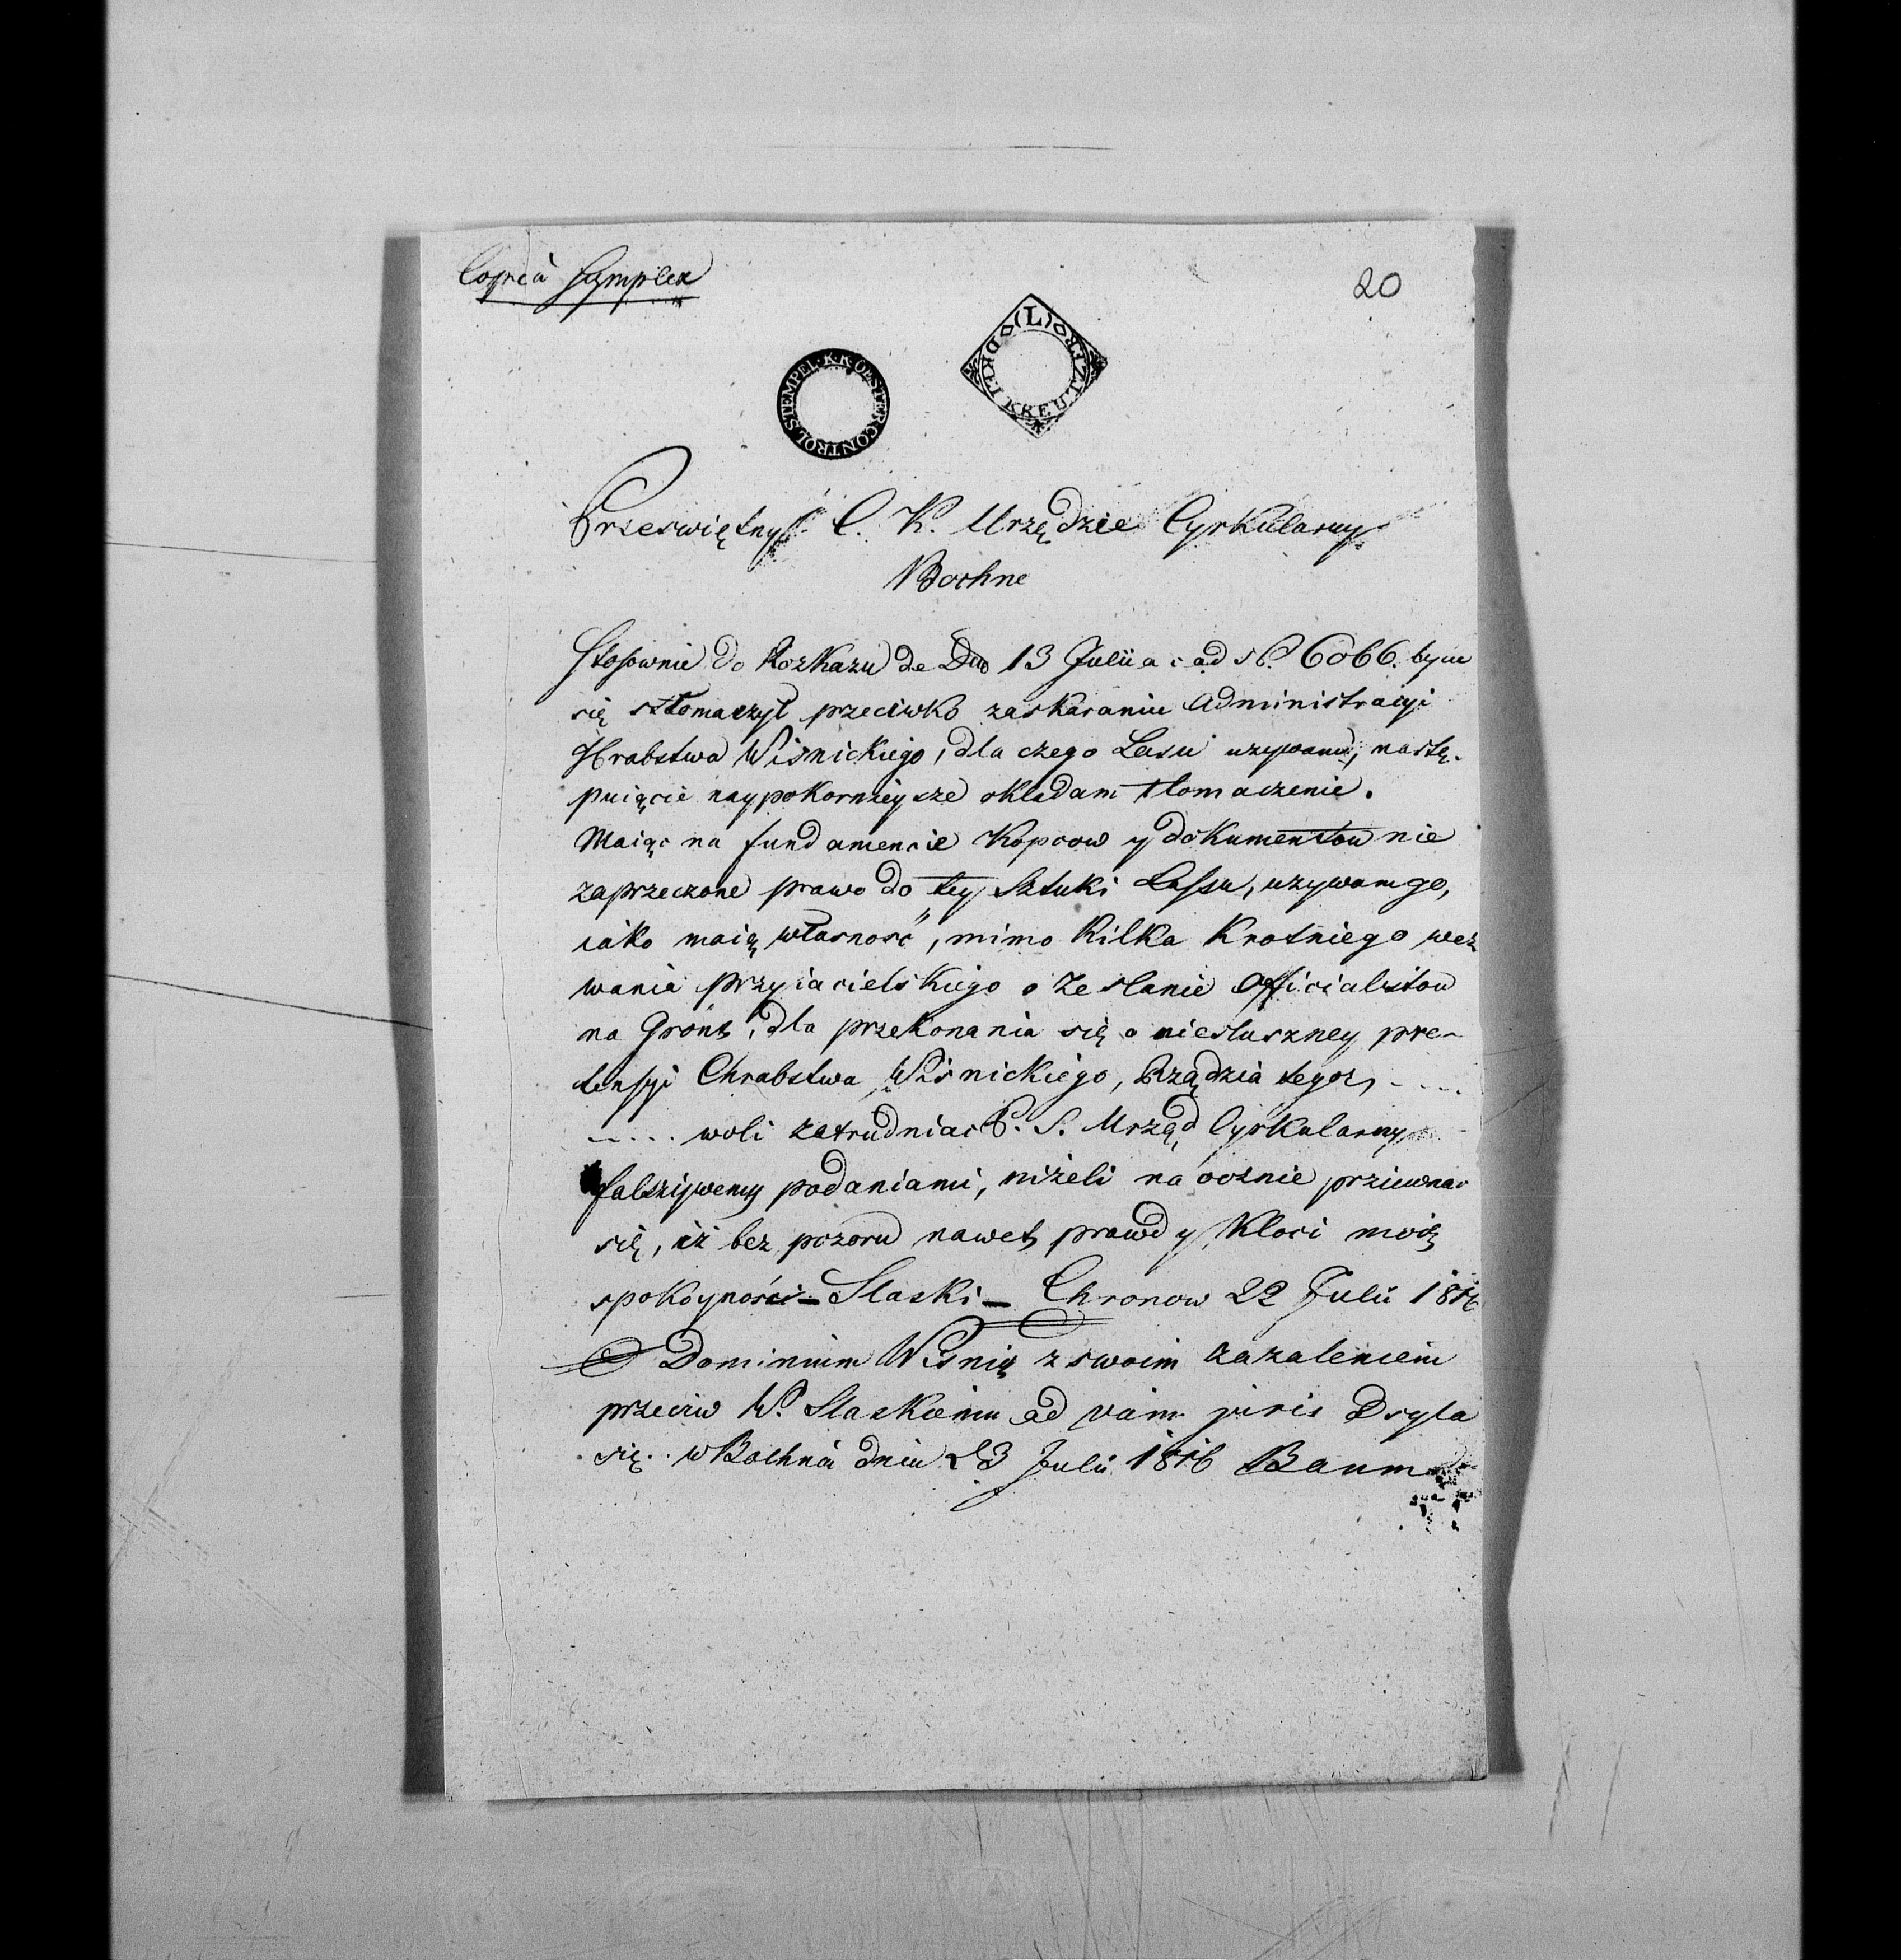 Copia Symplex
20
STEMPEL · K·K·OESTER CONTROL
(L) KREUTZER
Przeswiętny C. K. Urzędzie Cyrkularny
Bochne
Stosownie do Rozkazu de Dto 13 Julii a c ad № 6066. bym
się sztomaczył przeciwko zaskaraniu Administracyi
Hrabstwa Wiśnickiego, dla czego Lasu uzywam, nastę-
puiącie naypokornieysze składam tłomaczenie.
Maiąc na fundamencie Kopcow y dokumentow nie
zaprzeczone prawo do tey Sztuki Lassu, uzywam go,
iako moią własność, mimo Kilka Krotniego wez
wania przyiacielskiego o Zesłanie Officialistow
na Gront, dla przekonania się o niesłuszney pre-
tensyi Chrabstwa Wiśnickiego, Rządzia tegoz, ....
..... woli zatrudniac P. S. Urząd Cyrkularny
falszywemy podaniami, niżeli na ocznie
się, iż bez pozoru nawet prawdy, Kłoci moię
spokoyności – Slaski – Chronow 22 Julii 1816
Dominium Wisnię z swoim zazaleniem
przeciw W. Slaskiemu ad viam juris
się .. w Bochni dnia 23 Julii 1816 Baum